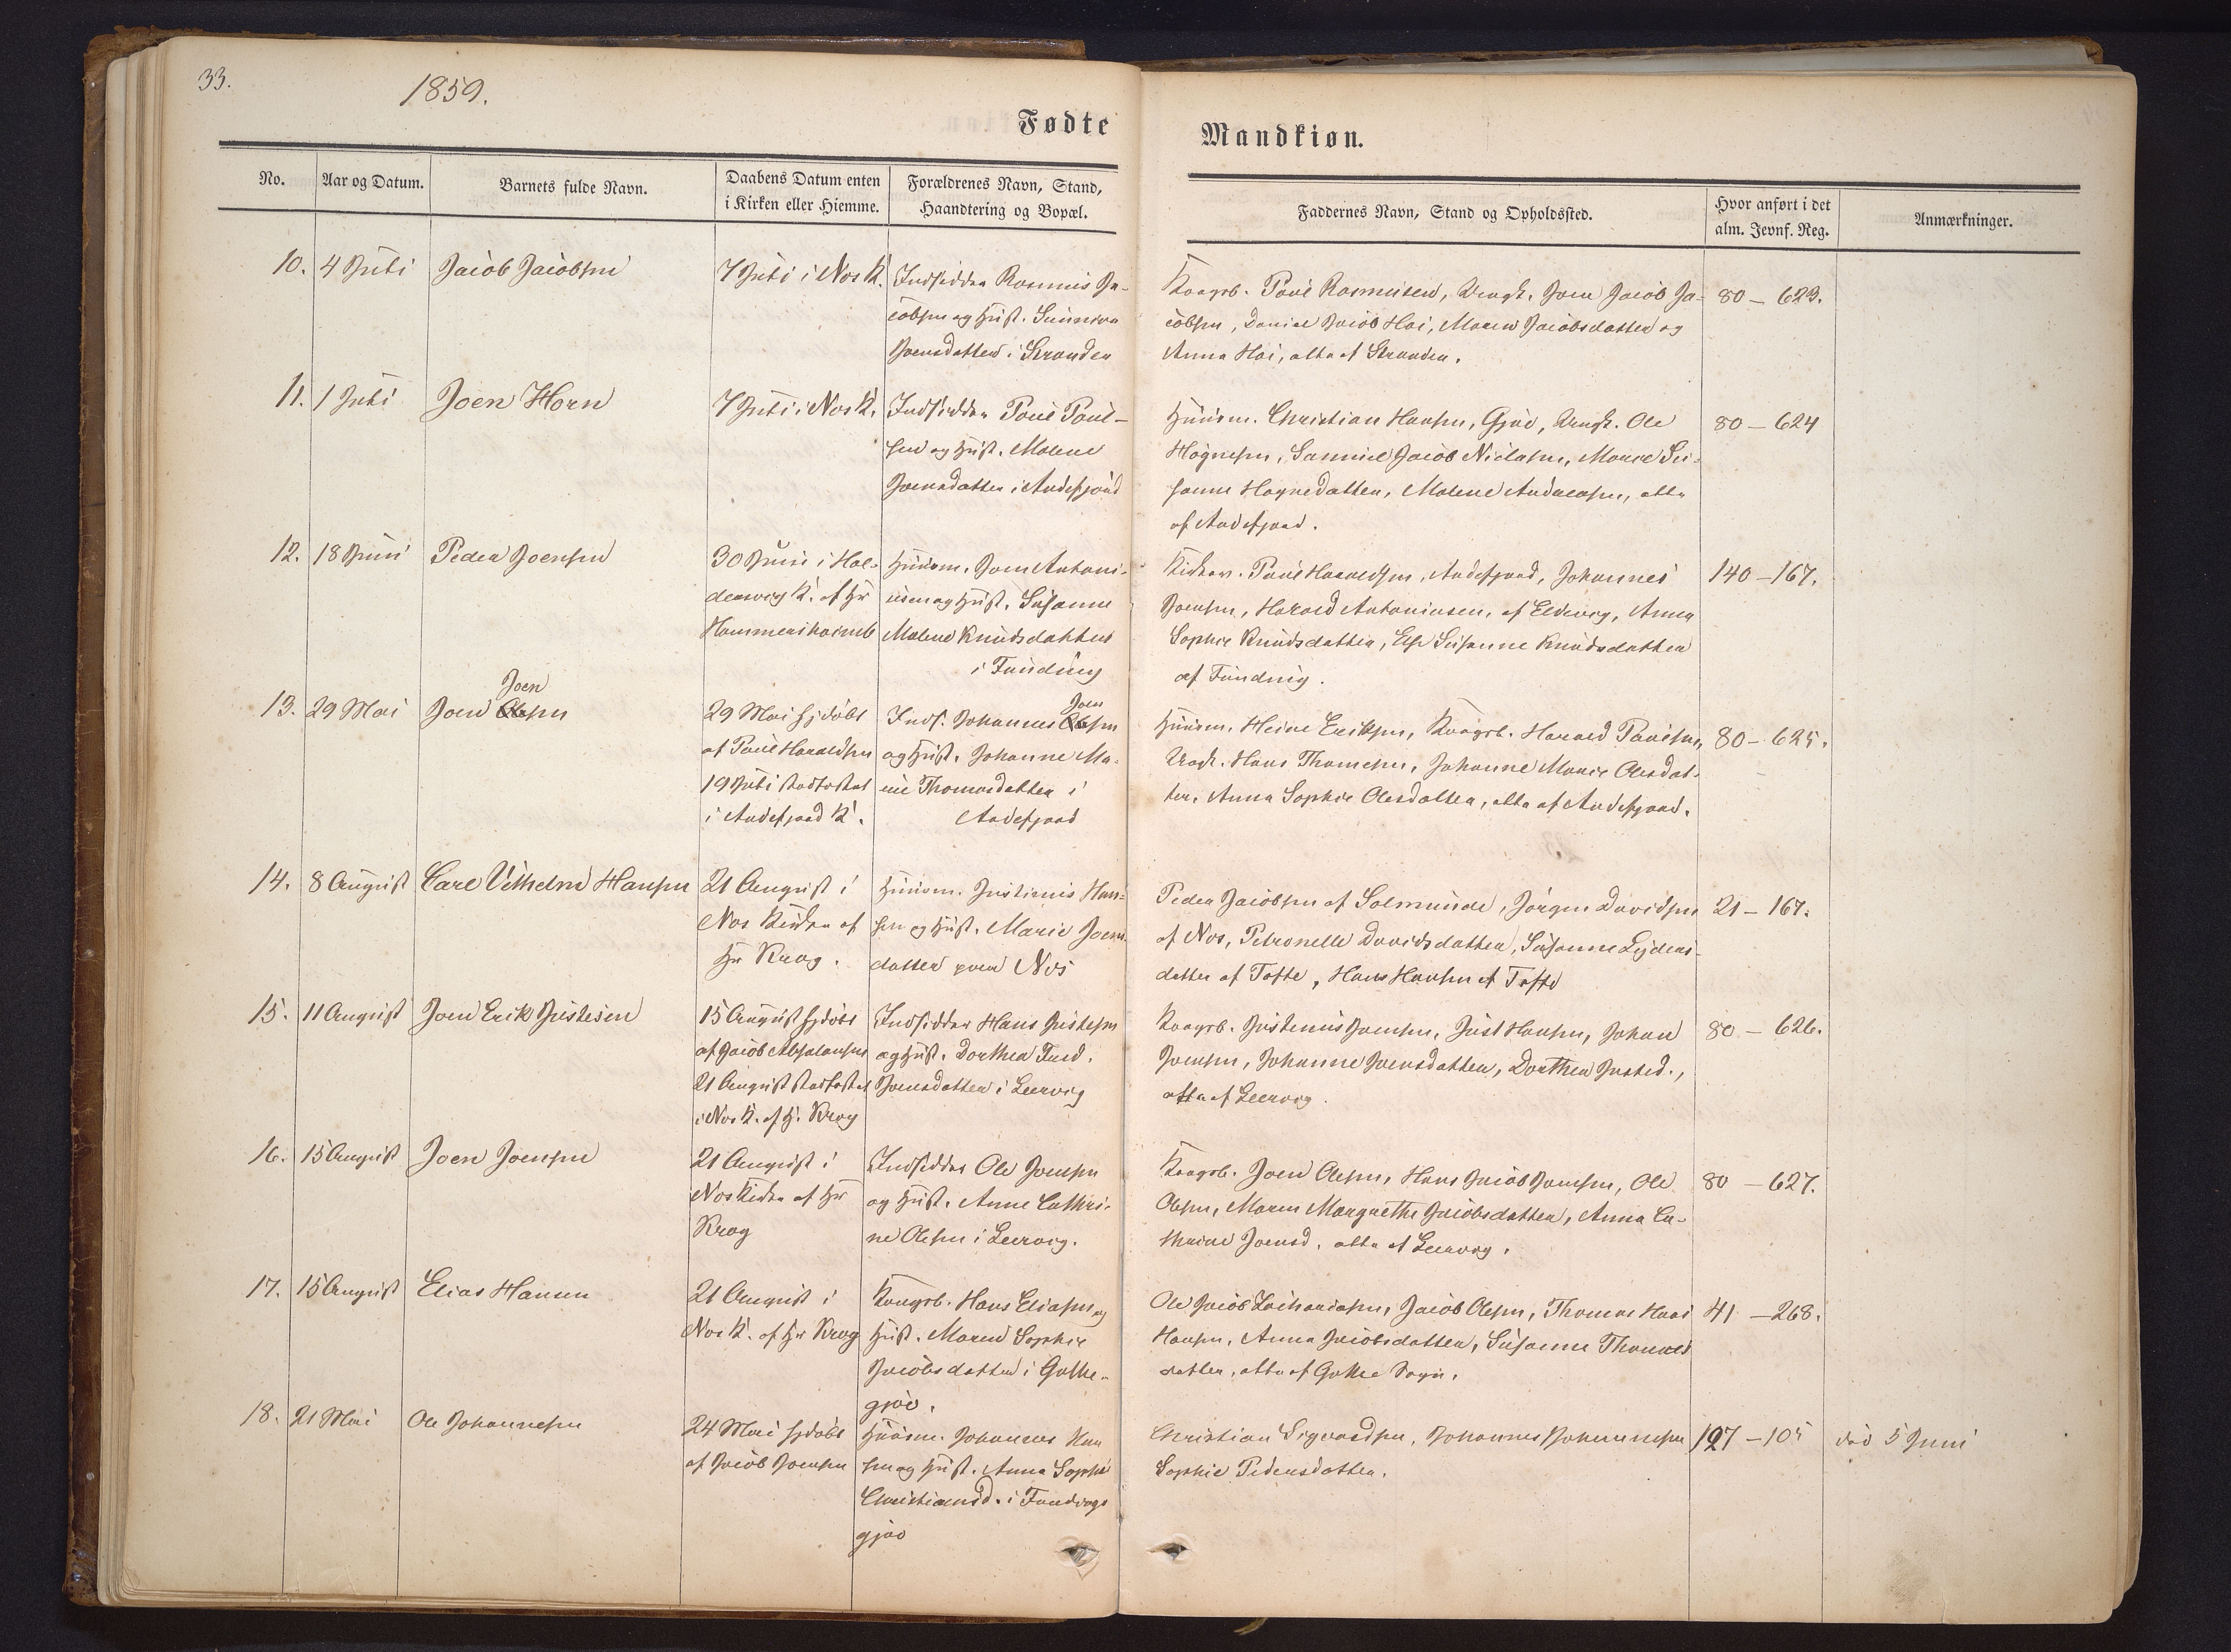 33.
1859.
Fødte
Mandkiøn.
No.
Aar og Datum.
Barnets fulde Navn.
Daabens Datum enten
i Kirken eller Hiemme.
Forældrenes Navn, Stand,
Haandtering og Bopæl.
Faddernes Navn, Stand og Opholdssted.
Hvor anført i det
alm. Jevnf. Reg.
Anmærkninger.
10.
4 Juli
Jacob Jacobsen
7 Juli i Nes K.
Indsidder Rasmus Ja-
cobsen og Hust. Sunniva
Joensdatter i Stranden
Kongsb. Poul Rasmusen, Ungk. Joen Jacob Ja-
cobsen, Daniel Jacob Hoi, Maren Jacobsdatter og
Anna Hoi, alle af Stranden.
80 – 623.
11.
1 Juli
Joen Horn
7 Juli i Nes K.
Indsidder Poul Poul-
sen og Hust. Malene
Joensdatter i Andefjord
Huusm. Christian Hansen, Gjov, Ungk. Ole
Høgnesen, Samuel Jacob Niclasen, Marie Su-
sanne Høgnedatter, Malene Andreasen, alle
af Andefjord.
80 – 624
12.
18 Juni
Peder Joensen
30 Juni i Hal-
dersvig K. af Hr
Hammershaimb
Huusm. Joen Antoni-
usen og Hust. Susanne
Malene Knudsdatter
i Funding
Kirkev. Poul Haraldsen, Andefjord, Johannes
Joensen, Harald Antoniusen, af Eldevig, Anna
Sophie Knudsdatter, Else Susanne Knudsdatter
af Funding.
140 – 167.
13.
29 Mai
Joen
Joen Olesen
29 Mai hjdøbt
af Poul Haraldsen
19 Juli stadfæstet
i Andefjord K.
Joen
Inds. Johannes Olesen
og Hust. Johanne Ma-
rie Thomasdatter i
Andefjord
Huusm. Heine Eriksen, Kongsb. Harald Poulsen,
Ungk. Hans Thomesen, Johanne Marie Olesdat-
ter, Anna Sophie Olesdatter, alle af Andefjord.
80 – 625.
14.
8 August
Carl Vilhelm Hansen
21 August i
Nes Kirke af
Hr Krog.
Huusm. Justinus Han-
sen og Hust. Marie Joens-
datter paa Nes
Peder Jacobsen af Solmunde, Jørgen Davidsen
af Nes, Petronelle Davidsdatter, Susanne Leyders-
datter af Tofte, Hans Hansen af Tofte
21 – 167.
15.
11 August
Joen Erik Justesen
15 August hjdøbt
af Jacob Absalonsen
21 August stadfæstet
i Nes K. af H. Krog
Indsidder Hans Justesen
og Hust. Dorthea Fred.
Joensdatter i Leervig
Kongsb. Justinus Joensen, Just Hansen, Johan
Joensen, Johanne Joensdatter, Dorthea Justed.,
alle af Leervig.
80 – 626.
16.
15 August
Joen Joensen
21 August i
Nes Kirke af Hr
Krog
Indsidder Ole Joensen
og Hust. Anne Cathri-
ne Olesen i Leervig.
Kongsb. Joen Olesen, Hans Jacob Joensen, Ole
Olesen, Maren Margrethe Jacobsdatter, Anna Ca-
thrine Joensd. alle af Leervig.
80 – 627.
17.
15 August
Elias Hansen
21 August i
Nes K. af Hr Krog
Kongsb. Hans Eliasen og
Hust. Maren Sophie
Jacobsdatter i Gothe-
gjov.
Ole Jacob Zachariasen, Jacob Olesen, Thomas Hans
Hansen, Anna Jacobsdatter, Susanne Thomas
datter, alle af Gothe Sogn.
41 – 268.
18.
21 Mai
Ole Johannesen
24 Mai hjdøbt
af Jacob Joensen
Huusm. Johannes Han
sen og Hust. Anna Sophie
Christiansd. i Fundings
gjov
Christian Sigvardsen, Johannes Johannesen
Sophie Pedersdatter.
127 – 105
død 5 Juni